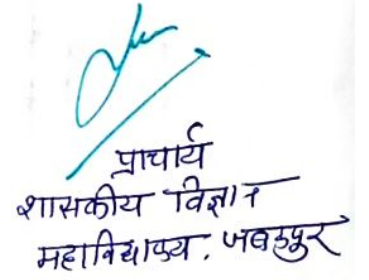 प्राचार्य
शासकीय विज्ञान
महाविद्यालय. जबलपुर